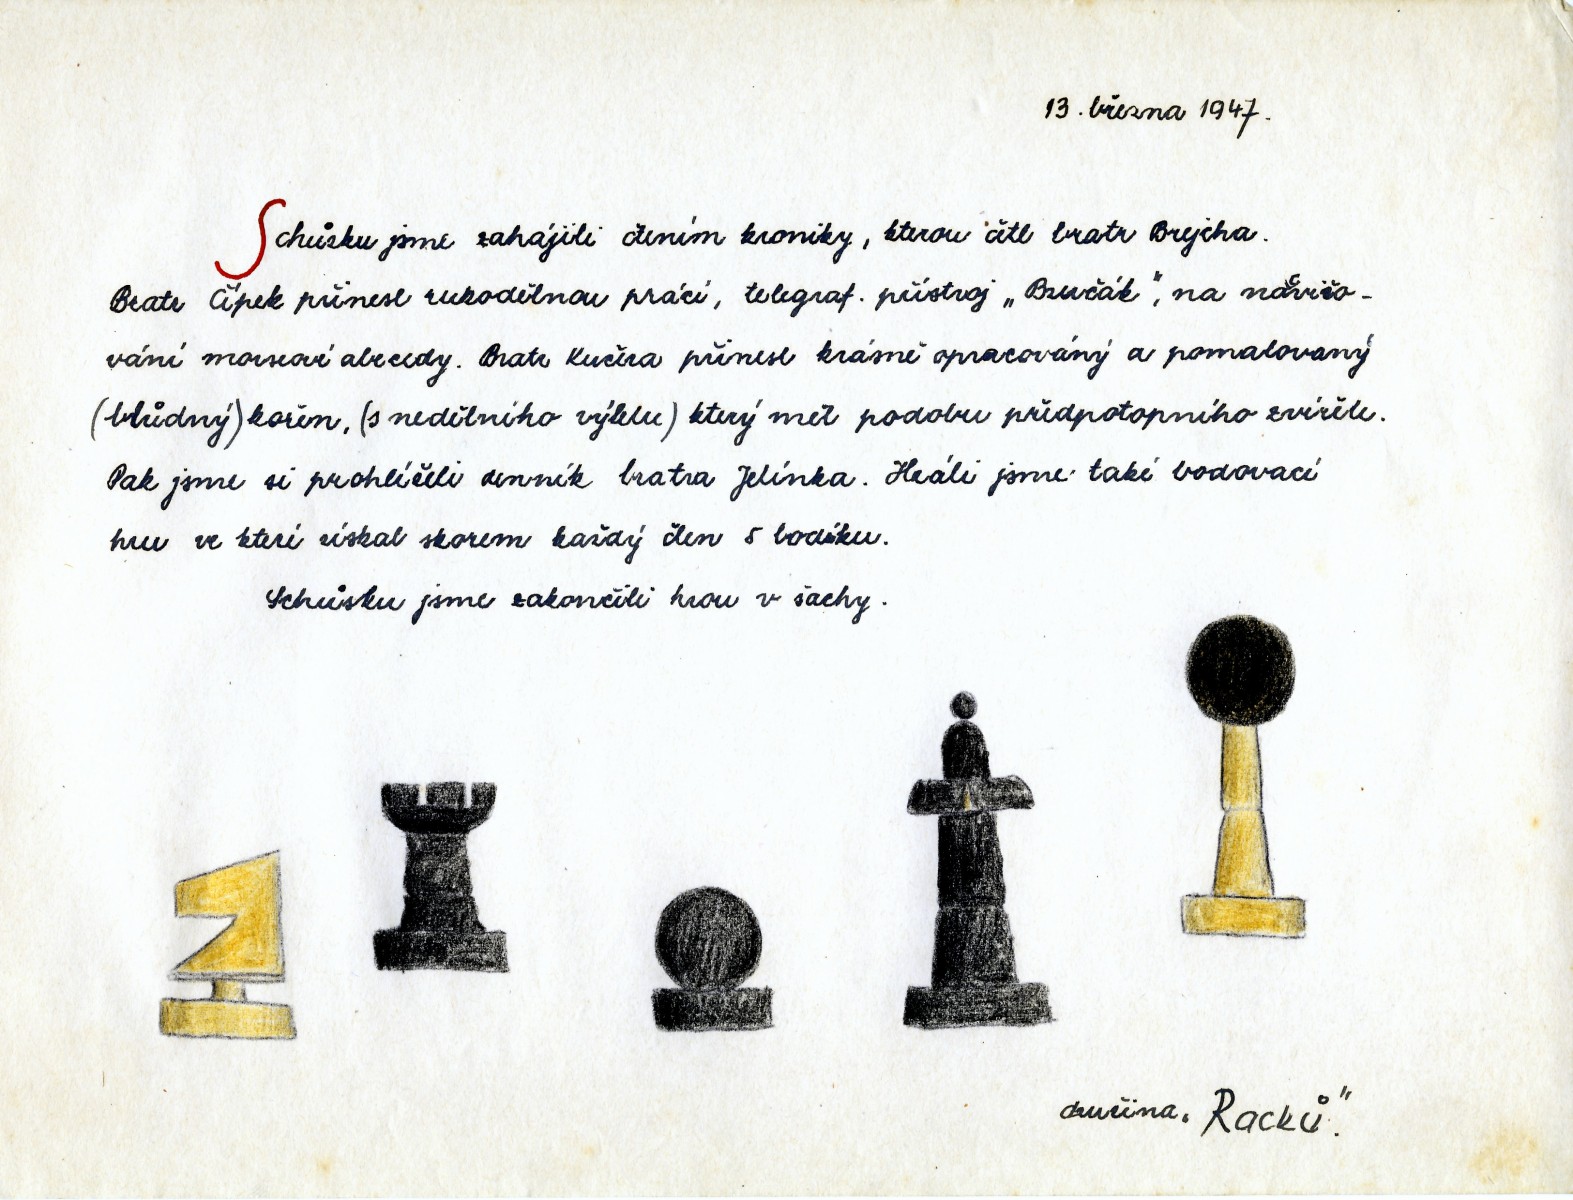 13. března 1947.
Schůzku jsme zahájili čením kroniky, kterou četl bratr Brejcha.
Bratr Čípek přinesl rukodělnou práci, telegraf. přístroj „Bzučák“, na nacvičo-
vání morseovi abecedy. Bratr Kučera přinesl krásně opracováný a pomalovaný
(bludný) kořen, (s nedělního výletu) který měl podobu předpotopního zvířete.
Pak jsme si prohlíželi denník bratra Jelínka. Hráli jsme také bodovací
hru ve které získal skorem každý člen 5 bodíku.
Schůsku jsme zakončili hrou v šachy.
družina „Racků“.